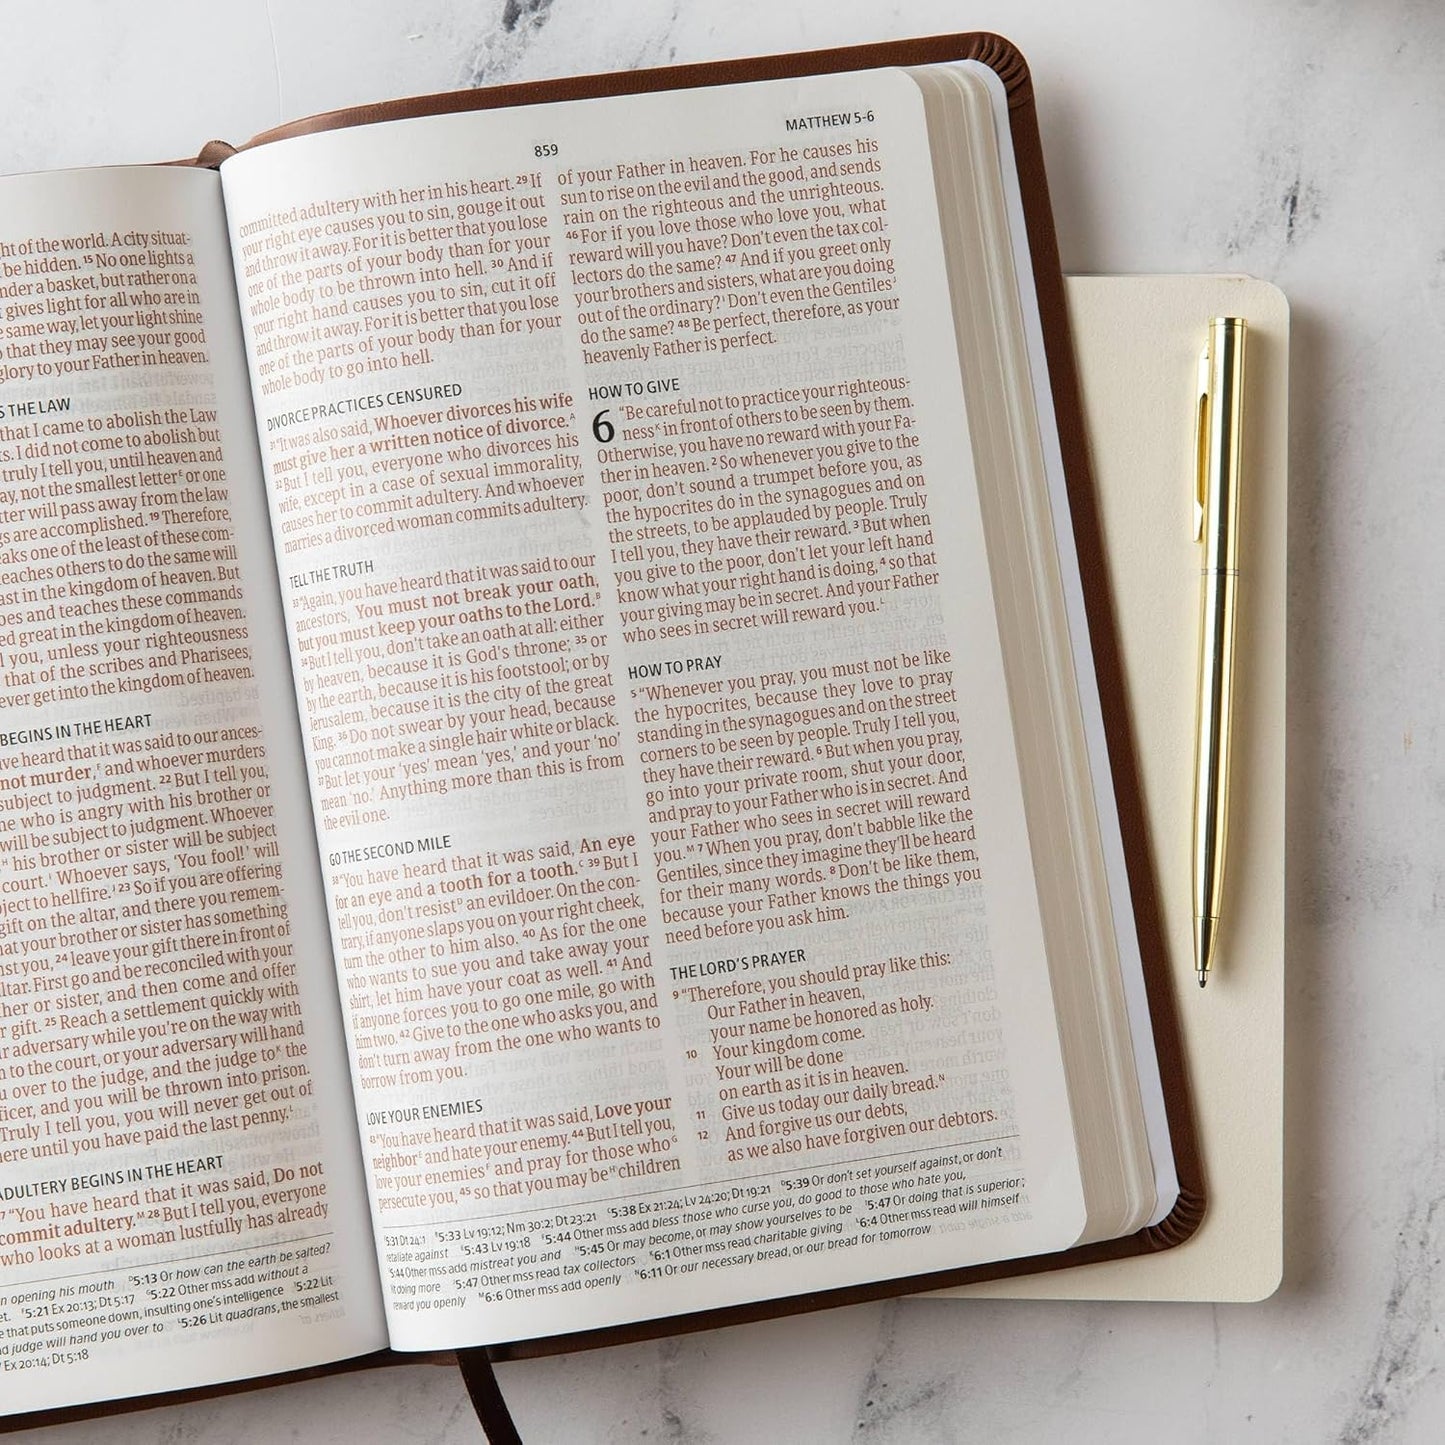 ht of the world. A city situat-
be hidden. 15 No one lights a
nder a basket, but rather on a
gives light for all who are in
e same way, let your light shine
o that they may see your good
glory to your Father in heaven.
S THE LAW
that I came to abolish the Law
ts. I did not come to abolish but
truly I tell you, until heaven and
ay, not the smallest letter E or one
tter will pass away from the law
gs are accomplished. 19 Therefore,
eaks one of the least of these com-
teaches others to do the same will
ast in the kingdom of heaven. But
oes and teaches these commands
ed great in the kingdom of heaven.
l you, unless your righteousness
that of the scribes and Pharisees,
ever get into the kingdom of heaven.
BEGINS IN THE HEART
ave heard that it was said to our ances-
not murder, F and whoever murders
subject to judgment. 22 But I tell you,
ne who is angry with his brother or
will be subject to judgment. Whoever
H his brother or sister will be subject
court. I Whoever says, 'You fool!' will
ject to hellfire. J 23 So if you are offering
gift on the altar, and there you remem-
hat your brother or sister has something
nst you, 24 leave your gift there in front of
altar. First go and be reconciled with your
ther or sister, and then come and offer
r gift. 25 Reach a settlement quickly with
r adversary while you're on the way with
n to the court, or your adversary will hand
u over to the judge, and the judge to K the
ficer, and you will be thrown into prison.
Truly I tell you, you will never get out of
here until you have paid the last penny. L
ADULTERY BEGINS IN THE HEART
7 "You have heard that it was said, Do not
commit adultery. M 28 But I tell you, everyone
who looks at a woman lustfully has already
n opening his mouth 5:13 Or how can the earth be salted?
et. 5:21 Ex 20:13; Dt 5:17 5:22 Other mss add without a
e that puts someone down, insulting one's intelligence 5:22 Lit
nd judge will hand you over to 5:26 Lit quadrans, the smallest
Ex 20:14; Dt 5:18
859
MATTHEW 5-6
committed adultery with her in his heart. 29 If
your right eye causes you to sin, gouge it out
and throw it away. For it is better that you lose
one of the parts of your body than for your
whole body to be thrown into hell. 30 And if
your right hand causes you to sin, cut it off
and throw it away. For it is better that you lose
one of the parts of your body than for your
whole body to go into hell.
DIVORCE PRACTICES CENSURED
31 "It was also said, Whoever divorces his wife
must give her a written notice of divorce. A
32 But I tell you, everyone who divorces his
wife, except in a case of sexual immorality,
causes her to commit adultery. And whoever
marries a divorced woman commits adultery.
TELL THE TRUTH
33 "Again, you have heard that it was said to our
ancestors, You must not break your oath,
but you must keep your oaths to the Lord. B
34 But I tell you, don't take an oath at all: either
by heaven, because it is God's throne; 35 or
by the earth, because it is his footstool; or by
Jerusalem, because it is the city of the great
King. 36 Do not swear by your head, because
you cannot make a single hair white or black.
37 But let your 'yes' mean 'yes,' and your 'no'
mean 'no.' Anything more than this is from
the evil one.
GO THE SECOND MILE
38 "You have heard that it was said, An eye
for an eye and a tooth for a tooth. C 39 But I
tell you, don't resist D an evildoer. On the con-
trary, if anyone slaps you on your right cheek,
turn the other to him also. 40 As for the one
who wants to sue you and take away your
shirt, let him have your coat as well. 41 And
if anyone forces you to go one mile, go with
him two. 42 Give to the one who asks you, and
don't turn away from the one who wants to
borrow from you.
LOVE YOUR ENEMIES
43 "You have heard that it was said, Love your
neighbor E and hate your enemy. 44 But I tell you,
love your enemies F and pray for those who G
persecute you, 45 so that you may be H children
of your Father in heaven. For he causes his
sun to rise on the evil and the good, and sends
rain on the righteous and the unrighteous.
46 For if you love those who love you, what
reward will you have? Don't even the tax col-
lectors do the same? 47 And if you greet only
your brothers and sisters, what are you doing
out of the ordinary? I Don't even the Gentiles J
do the same? 48 Be perfect, therefore, as your
heavenly Father is perfect.
HOW TO GIVE
6 "Be careful not to practice your righteous-
ness K in front of others to be seen by them.
Otherwise, you have no reward with your Fa-
ther in heaven. 2 So whenever you give to the
poor, don't sound a trumpet before you, as
the hypocrites do in the synagogues and on
the streets, to be applauded by people. Truly
I tell you, they have their reward. 3 But when
you give to the poor, don't let your left hand
know what your right hand is doing, 4 so that
your giving may be in secret. And your Father
who sees in secret will reward you. L
HOW TO PRAY
5 "Whenever you pray, you must not be like
the hypocrites, because they love to pray
standing in the synagogues and on the street
corners to be seen by people. Truly I tell you,
they have their reward. 6 But when you pray,
go into your private room, shut your door,
and pray to your Father who is in secret. And
your Father who sees in secret will reward
you. M 7 When you pray, don't babble like the
Gentiles, since they imagine they'll be heard
for their many words. 8 Don't be like them,
because your Father knows the things you
need before you ask him.
THE LORD'S PRAYER
9 "Therefore, you should pray like this:
Our Father in heaven,
your name be honored as holy.
10 Your kingdom come.
Your will be done
on earth as it is in heaven.
11 Give us today our daily bread. N
12 And forgive us our debts,
as we also have forgiven our debtors.
5:31 Dt 24:1 5:33 Lv 19:12; Nm 30:2; Dt 23:21 5:38 Ex 21:24; Lv 24:20; Dt 19:21 5:39 Or don't set yourself against, or don't
retaliate against 5:43 Lv 19:18 5:44 Other mss add bless those who curse you, do good to those who hate you,
5:44 Other mss add mistreat you and 5:45 Or may become, or may show yourselves to be 5:47 Or doing that is superior;
lit doing more 5:47 Other mss read tax collectors 6:1 Other mss read charitable giving 6:4 Other mss read will himself
reward you openly 6:6 Other mss add openly 6:11 Or our necessary bread, or our bread for tomorrow